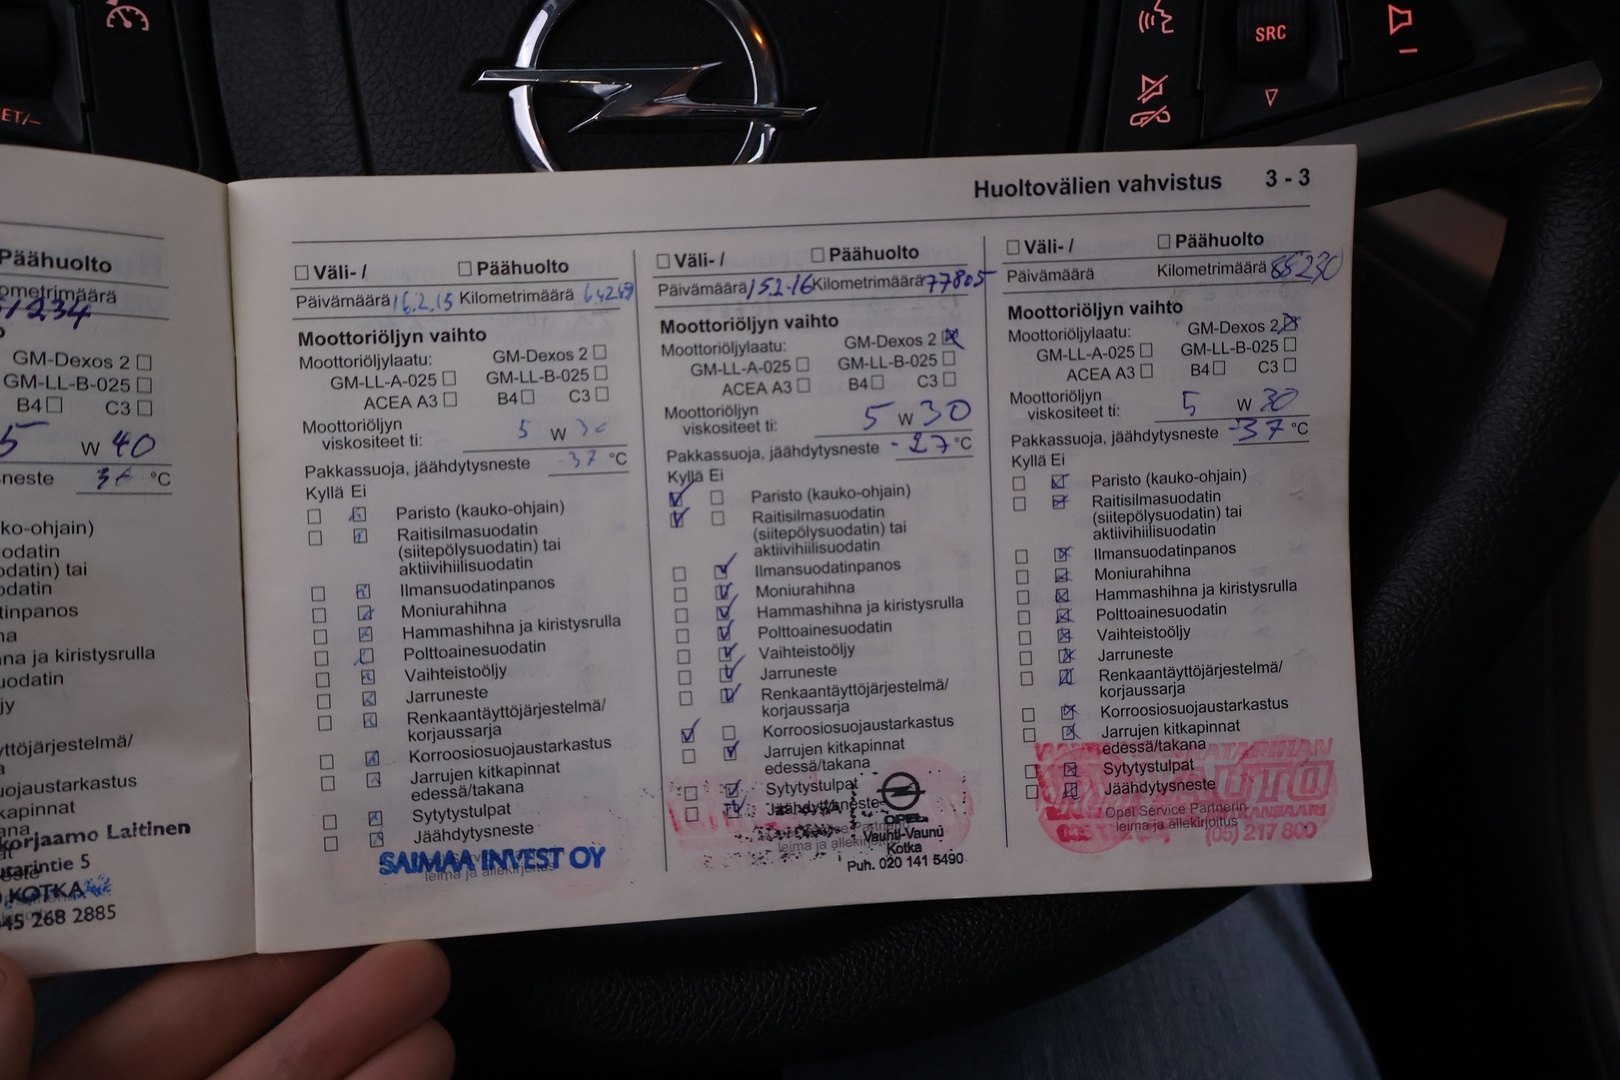 SET/-
SRC
Päähuolto
ometrimäärä
51234
GM-Dexos 2
GM-LL-B-025
B4 C3
5 W 40
neste 36 °C
ko-ohjain)
odatin
odatin) tai
odatin
tinpanos
na
na ja kiristysrulla
uodatin
jy
yttöjärjestelmä/
a
uojaustarkastus
kapinnat
ana
korjaamo Laitinen
tarintie 5
KOTKA
045 268 2885
Huoltovälien vahvistus 3 - 3
Väli- / Päähuolto
Päivämäärä 16.2.15 Kilometrimäärä 64249
Moottoriöljyn vaihto
Moottoriöljylaatu: GM-Dexos 2
GM-LL-A-025 GM-LL-B-025
ACEA A3 B4 C3
Moottoriöljyn
viskositeet ti: 5 W 30
Pakkassuoja, jäähdytysneste -37 °C
Kyllä Ei
Paristo (kauko-ohjain)
Raitisilmasuodatin
(siitepölysuodatin) tai
aktiivihiilisuodatin
Ilmansuodatinpanos
Moniurahihna
Hammashihna ja kiristysrulla
Polttoainesuodatin
Vaihteistoöljy
Jarruneste
Renkaantäyttöjärjestelmä/
korjaussarja
Korroosiosuojaustarkastus
Jarrujen kitkapinnat
edessä/takana
Sytytystulpat
Jäähdytysneste
SAIMAA INVEST OY
leima ja allekirjoitus
Väli- / Päähuolto
Päivämäärä 15.2-16 Kilometrimäärä 77805
Moottoriöljyn vaihto
Moottoriöljylaatu: GM-Dexos 2
GM-LL-A-025 GM-LL-B-025
ACEA A3 B4 C3
Moottoriöljyn
viskositeet ti: 5 W 30
Pakkassuoja, jäähdytysneste -27 °C
Kyllä Ei
Paristo (kauko-ohjain)
Raitisilmasuodatin
(siitepölysuodatin) tai
aktiivihiilisuodatin
Ilmansuodatinpanos
Moniurahihna
Hammashihna ja kiristysrulla
Polttoainesuodatin
Vaihteistoöljy
Jarruneste
Renkaantäyttöjärjestelmä/
korjaussarja
Korroosiosuojaustarkastus
Jarrujen kitkapinnat
edessä/takana
Sytytystulpat
Jäähdytysneste
OPEL
Vauhti-Vaunu
leima ja allekirjoitus
Kotka
Puh. 020 141 5490
Väli- / Päähuolto
Päivämäärä Kilometrimäärä 85230
Moottoriöljyn vaihto
Moottoriöljylaatu: GM-Dexos 2
GM-LL-A-025 GM-LL-B-025
ACEA A3 B4 C3
Moottoriöljyn
viskositeet ti: 5 W 30
Pakkassuoja, jäähdytysneste -37 °C
Kyllä Ei
Paristo (kauko-ohjain)
Raitisilmasuodatin
(siitepölysuodatin) tai
aktiivihiilisuodatin
Ilmansuodatinpanos
Moniurahihna
Hammashihna ja kiristysrulla
Polttoainesuodatin
Vaihteistoöljy
Jarruneste
Renkaantäyttöjärjestelmä/
korjaussarja
Korroosiosuojaustarkastus
Jarrujen kitkapinnat
edessä/takana
Sytytystulpat
Jäähdytysneste
AUTO
Opel Service Partnerin
leima ja allekirjoitus
(05) 217 800